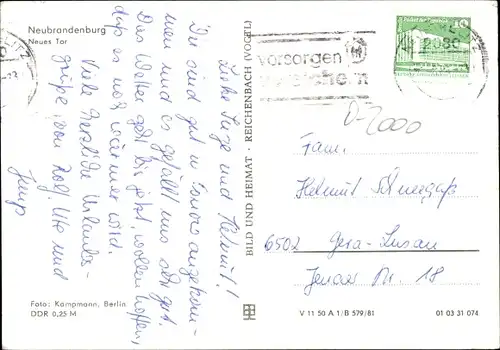 Neubrandenburg
Neues Tor
Liebe Inge und Helmut!
Wir sind gut in angekom-
men und es gefällt uns sehr gut.
Das Wetter geht bis jetzt, wollen hoffen,
daß es noch wärmer wird.
Viele herzliche Urlaubs-
grüße von Rolf, Ute und
Jens
Foto: Kampmann, Berlin
DDR 0,25 M
BILD UND HEIMAT · REICHENBACH (VOGTL)
vorsorgen
10
2080
D-2000
Fam.
Helmut
6502 Gera-Lusan
Jenaer Str. 18
V 11 50 A 1/B 579/81
01 03 31 074